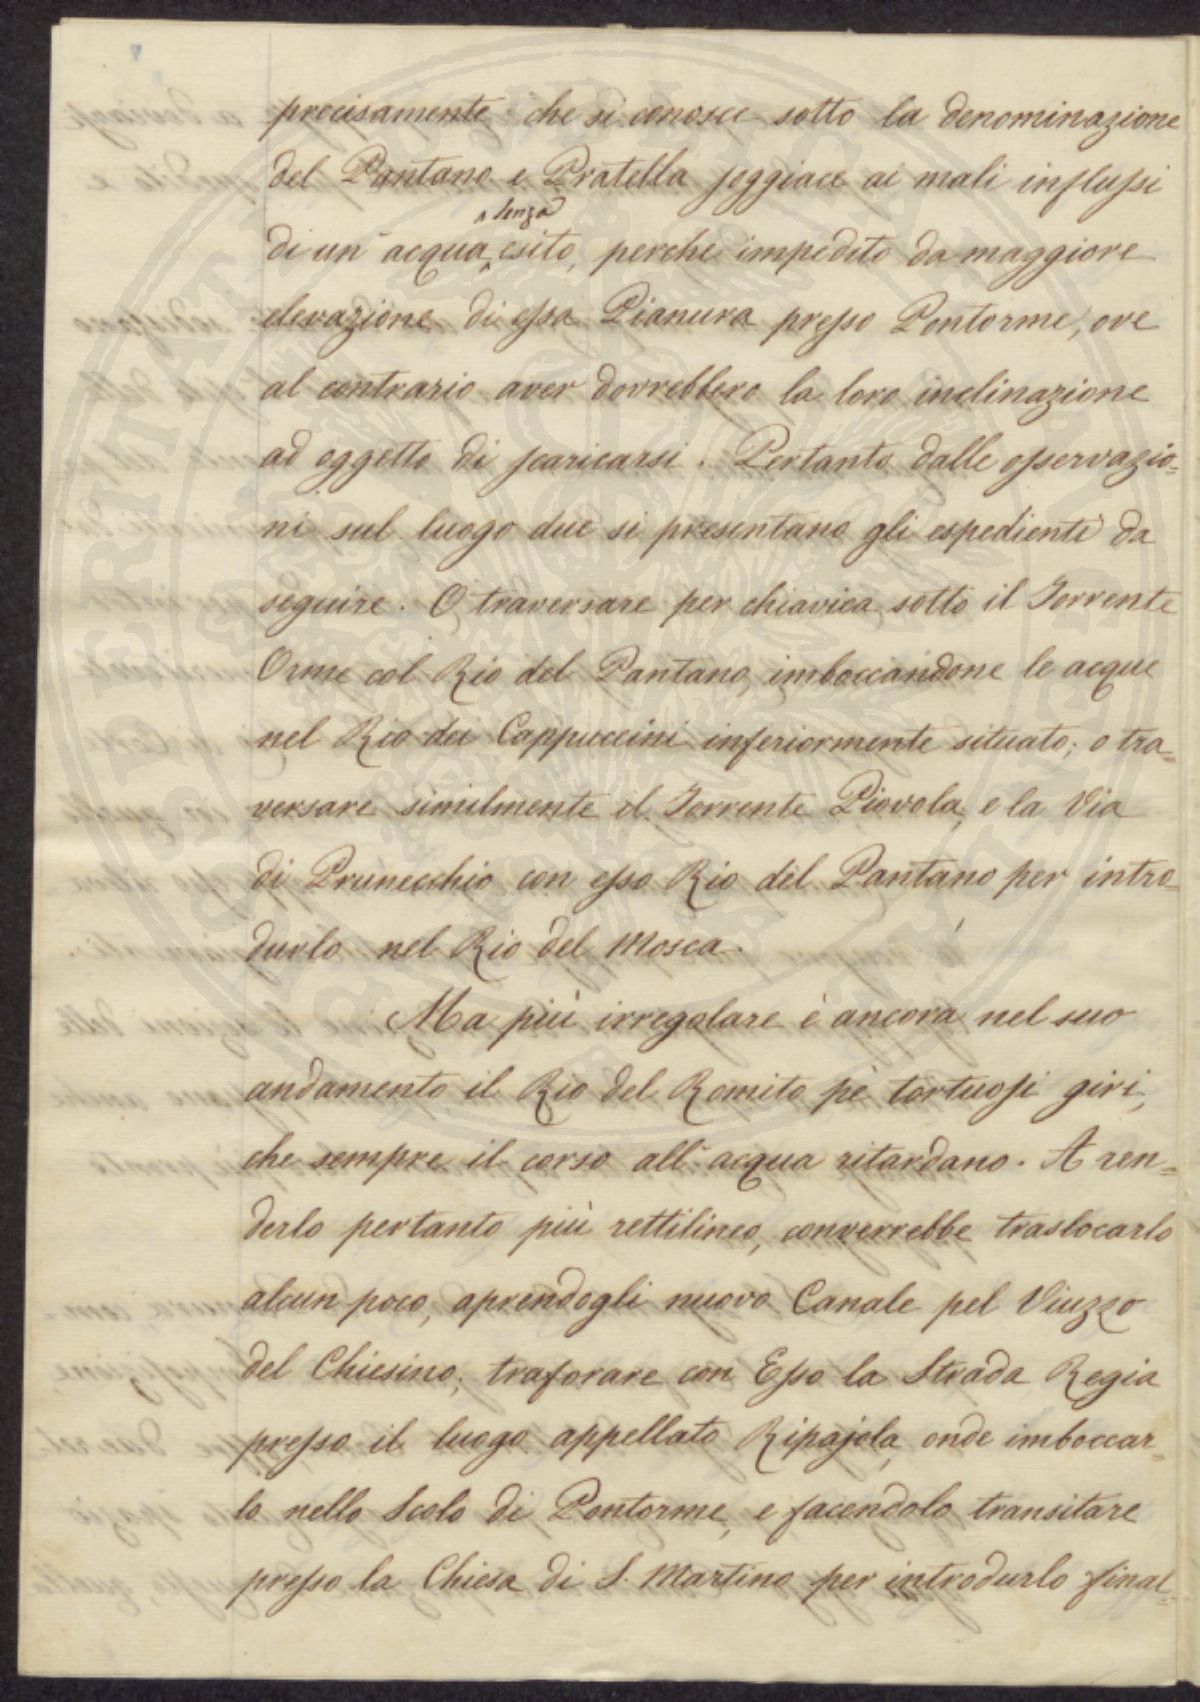 precisamente che si conosce sotto la denominazione
del Pantano e Pratella soggiace ai mali influssi
senza
di un' acqua esito, perche impedito da maggiore
elevazione di essa Pianura presso Pontorme, ove
al contrario aver dovrebbero la loro inclinazione
ad oggetto di scaricarsi. Pertanto dalle osservazio=
ni sul luogo due si presentano gli espedienti da
seguire. O traversare per chiavica sotto il Torrente
Orme col Rio del Pantano, imboccandone le acque
nel Rio dei Cappuccini inferiormente situato; o tra=
versare similmente il Torrente Piovola, e la Via
di Prunecchio con esso Rio del Pantano per intro=
durlo nel Rio del Mosca.
Ma più irregolare è ancora nel suo
andamento il Rio del Romito pe' tortuosi giri,
che sempre il corso all' acqua ritardano. A ren=
derlo pertanto più rettilineo, converrebbe traslocarlo
alcun poco, aprendogli nuovo Canale pel Viuzzo
del Chiesino; traforare con Esso la Strada Regia
presso il luogo appellato Ripajola, onde imboccar=
lo nello Scolo di Pontorme, e facendolo transitare
presso la Chiesa di S. Martino per introdurlo final=